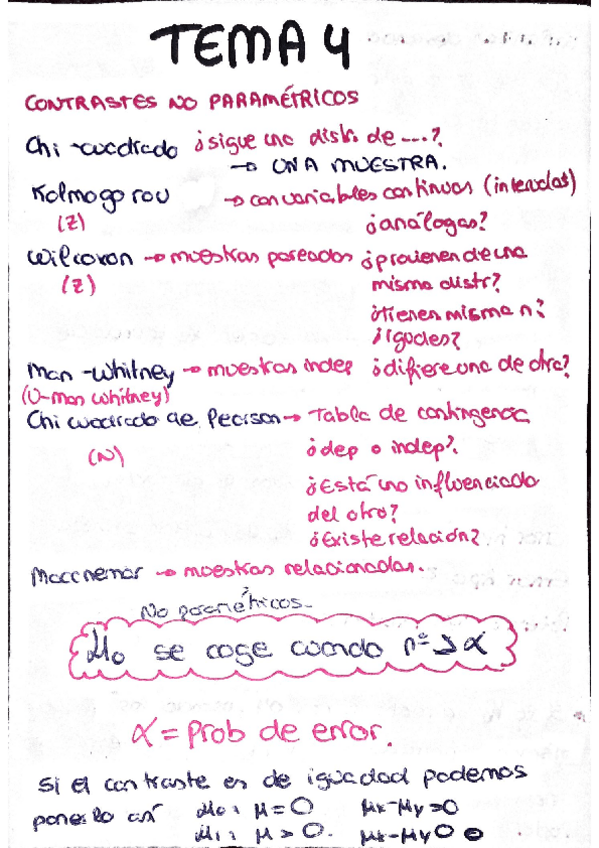 TEMA 4
CONTRASTES NO PARAMÉTRICOS
Chi-cuadrado ¿sigue una distr. de ---?
→ UNA MUESTRA.
Kolmogorov → con variables continuas (intervalos)
(Z) ¿análogas?
Wilcoxon → muestras pareadas ¿provienen de una
(Z) misma distr?
¿tienen misma n?
¿Iguales?
Man-Whitney → muestras indep ¿difiere una de otra?
(U-man whitney)
Chi cuadrado de Pearson → Tabla de contingencia
(N) ¿dep o indep?
¿Está uno influenciado
del otro?
¿Existe relación?
Maccnemar → muestras relacionadas.
No paramétricos.
Ho se coge cuando nº > α
α = Prob de error.
Si el contraste es de igualdad podemos
ponerlo así Ho: μ = 0 μx-μy = 0
H1: μ > 0. μx-μy